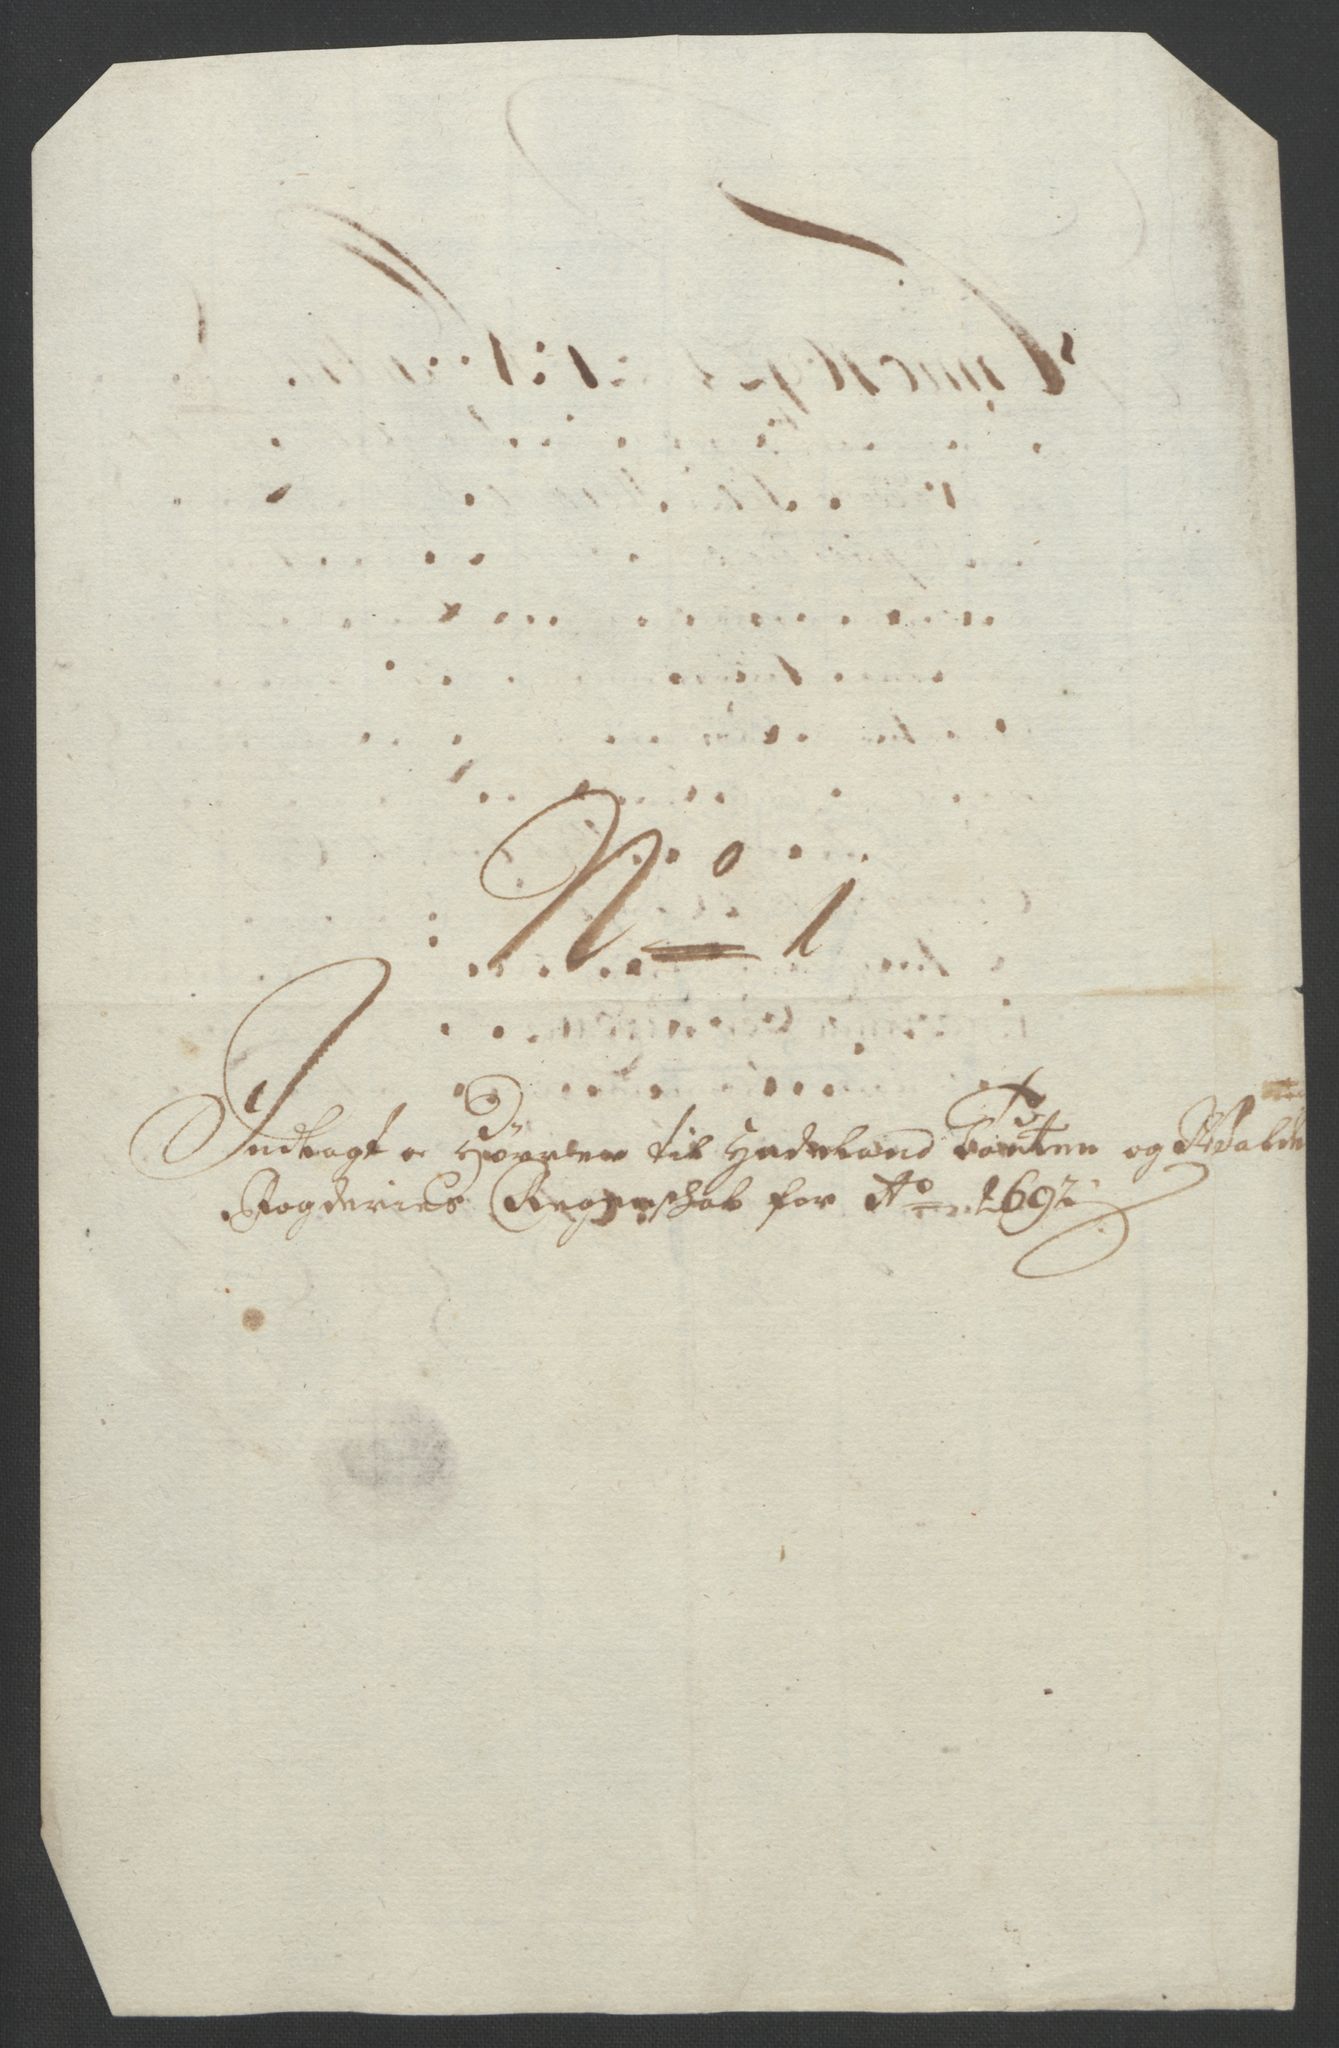 No 1
Indlagt og Hører til Hadeland Toten og Walders
Fogderies Regenschab for Ao 1692